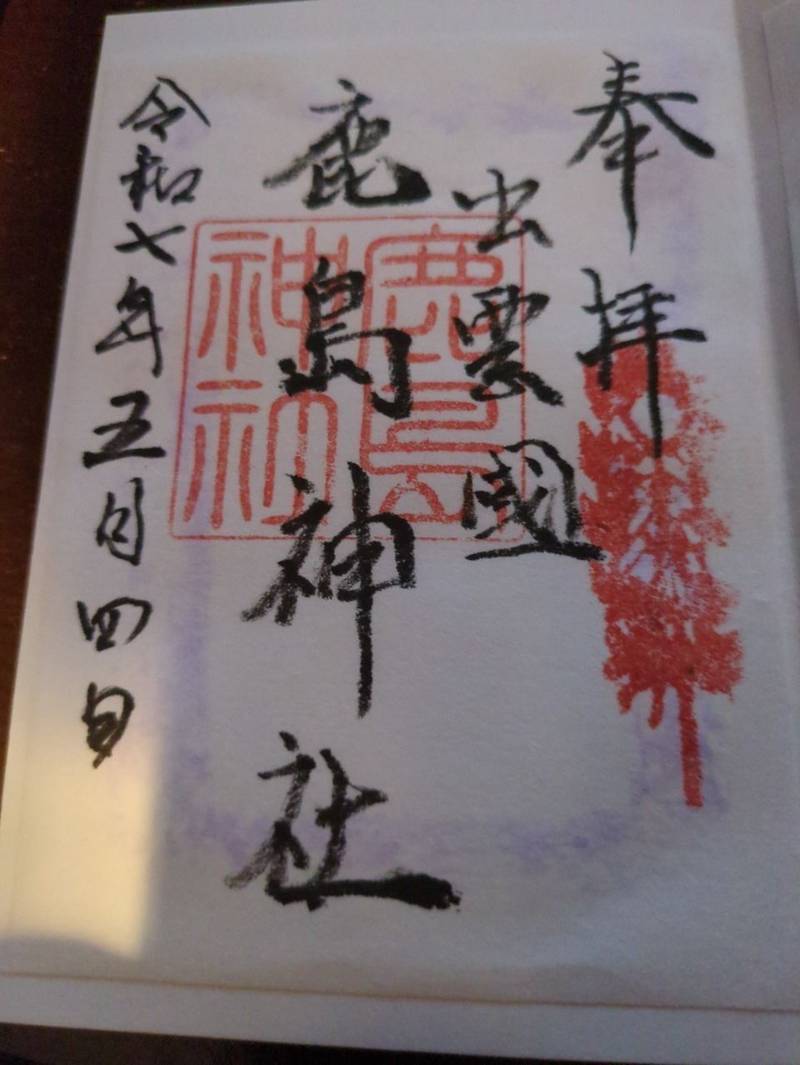 奉拝
出雲國
鹿島神社
鹿島
神社
令和七年五月四日